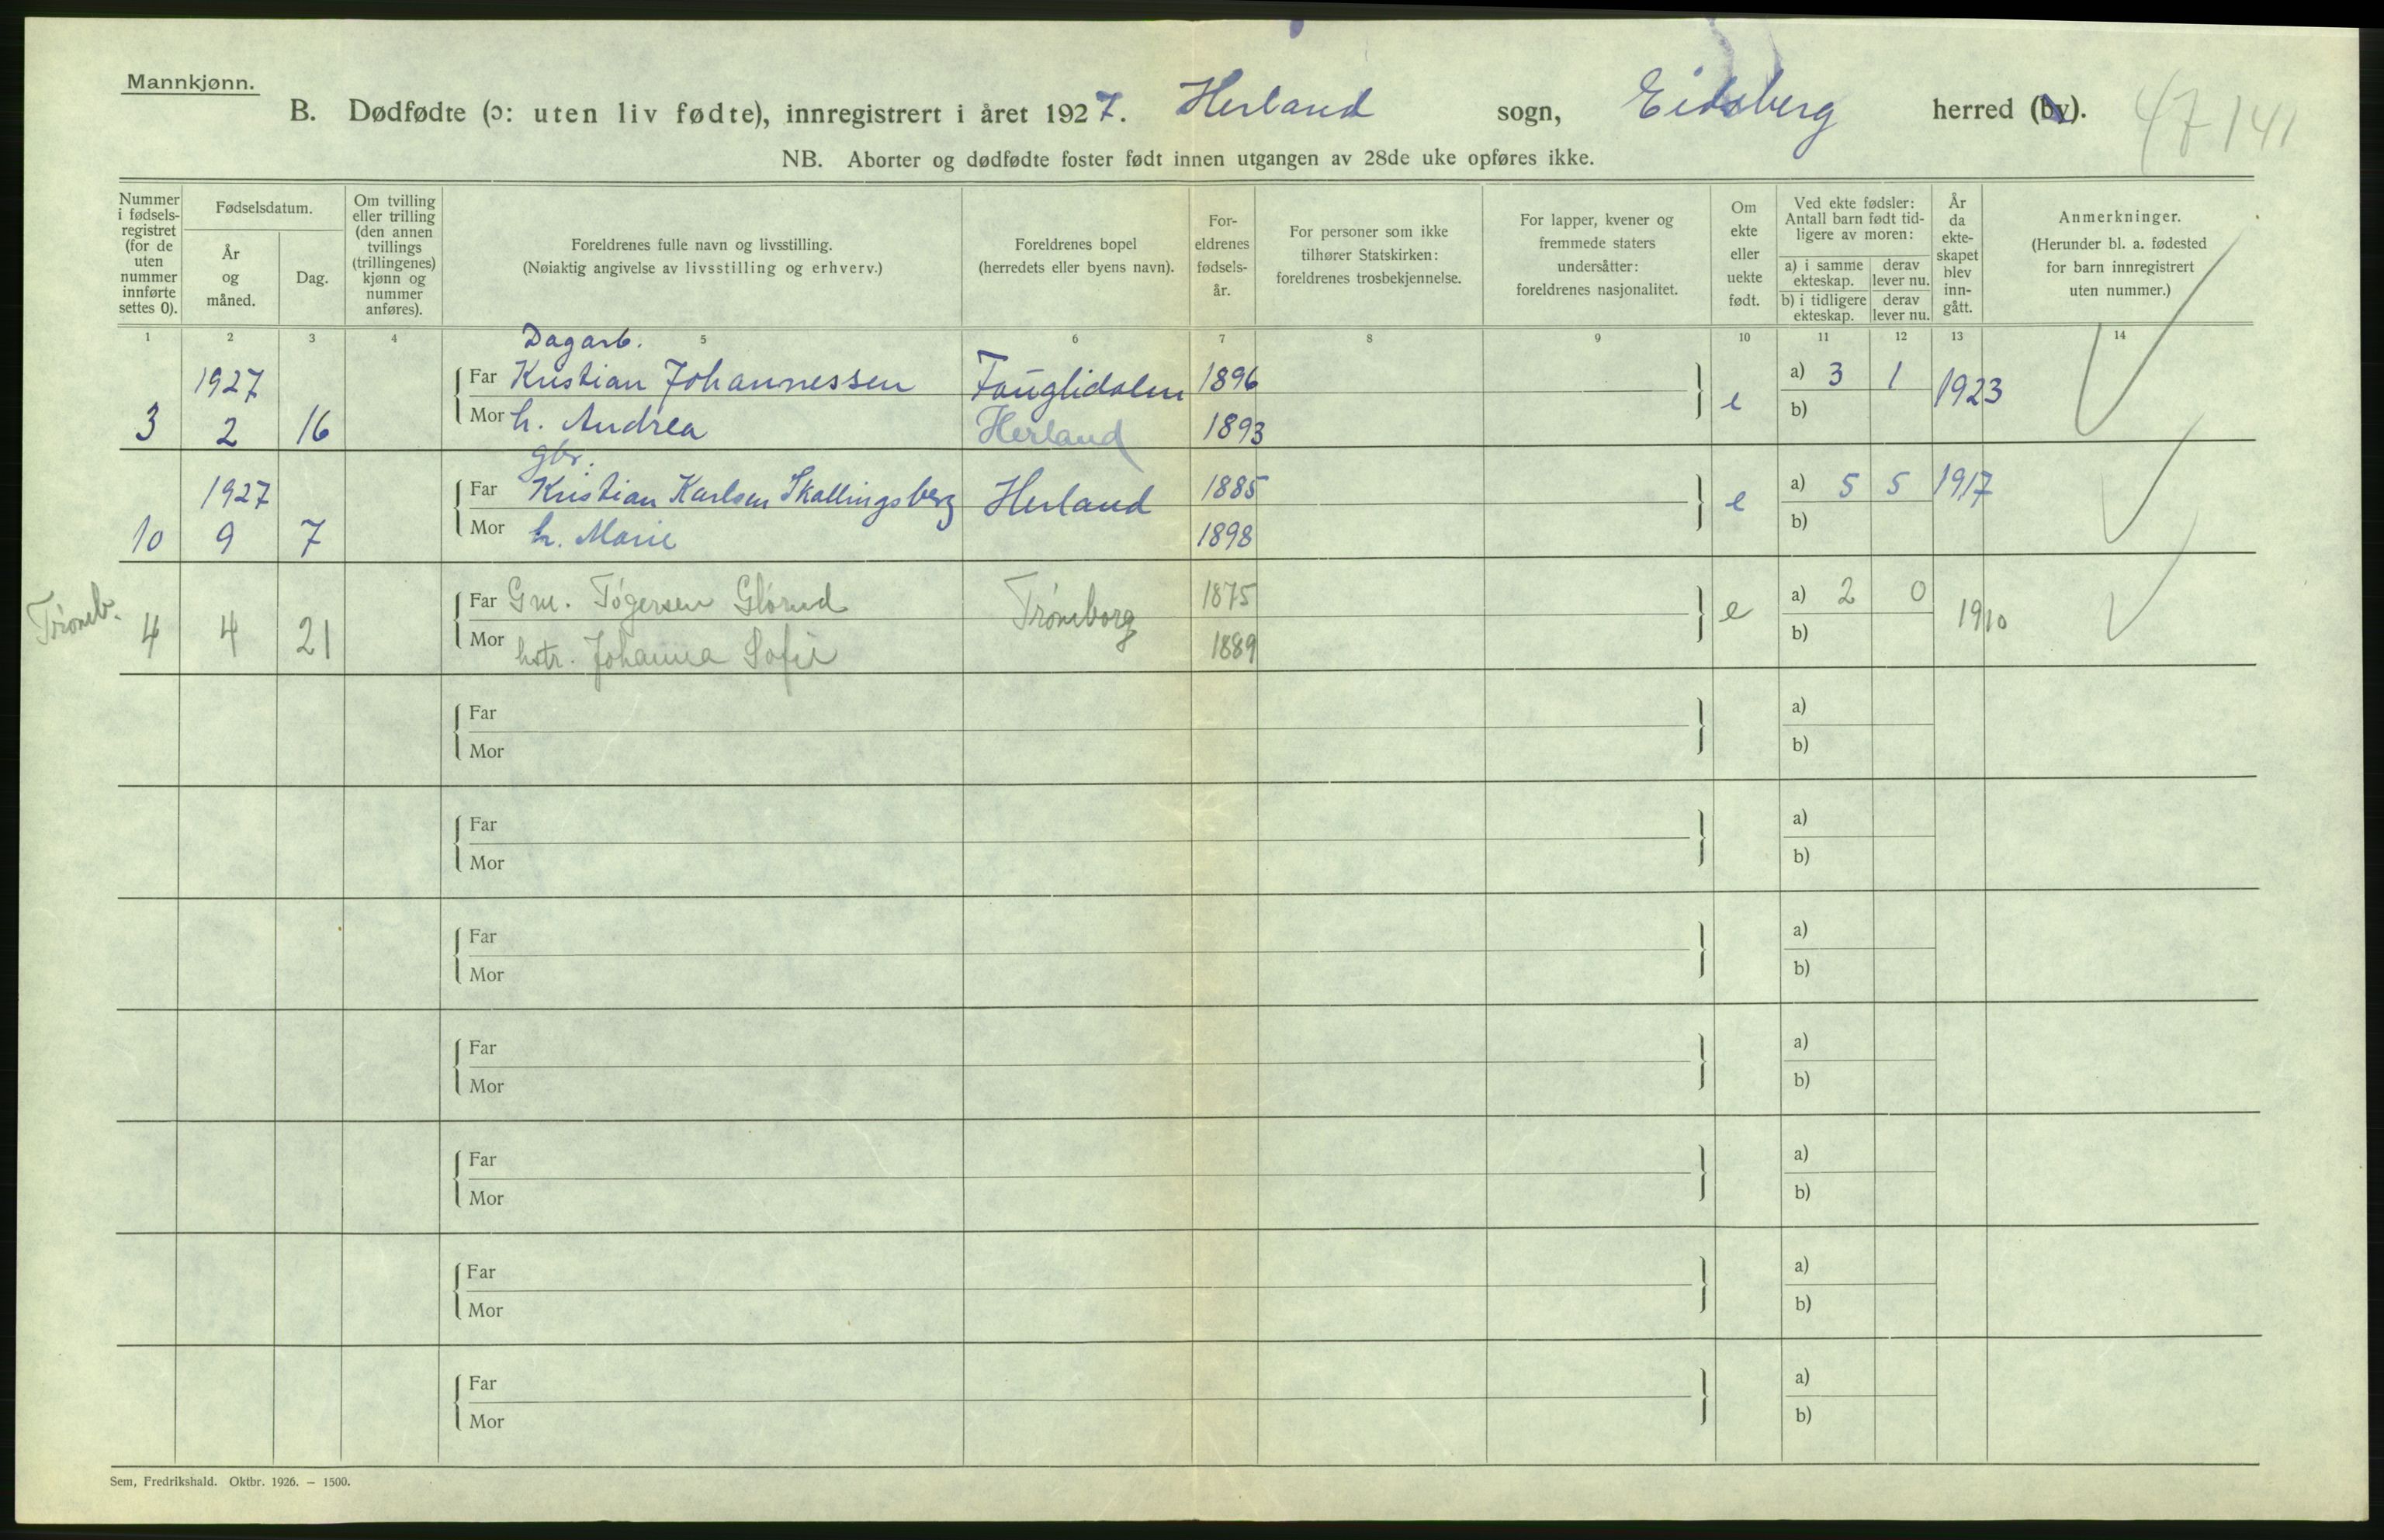 Mannkjønn.
B. Dødfødte (ɔ: uten liv fødte), innregistrert i året 1927. Herland sogn, Eidsberg herred (by).
47 141
NB. Aborter og dødfødte foster født innen utgangen av 28de uke opføres ikke.
Nummer i fødsels-registret (for de uten nummer innførte settes 0).
Fødselsdatum.
År og måned.
Dag.
Om tvilling eller trilling (den annen tvillings (trillingenes) kjønn og nummer anføres).
Foreldrenes fulle navn og livsstilling.
(Nøiaktig angivelse av livsstilling og erhverv.)
Foreldrenes bopel
(herredets eller byens navn).
For-eldrenes fødsels-år.
For personer som ikke tilhører Statskirken: foreldrenes trosbekjennelse.
For lapper, kvener og fremmede staters undersåtter: foreldrenes nasjonalitet.
Om ekte eller uekte født.
Ved ekte fødsler: Antall barn født tid-ligere av moren:
a) i samme ekteskap. derav lever nu.
b) i tidligere ekteskap. derav lever nu.
År da ekte-skapet blev inn-gått.
Anmerkninger.
(Herunder bl. a. fødested for barn innregistrert uten nummer.)
1 2 3 4 5 6 7 8 9 10 11 12 13 14
Dagarb.
1927 Far Kristian Johannessen 1896 a) 3 1 1923
3 2 16 Mor h. Andrea Herland 1893 e b)
gbr.
1927 Far Kristian Karlsen Skallingsberg Herland 1885 e a) 5 5 1917
10 9 7 Mor h. Marie 1898 b)
Trømb. Far Gm. Togersen Glørud Trømborg 1875 e a) 2 0 1910
4 4 21 Mor hstr. Johanna Sofie 1889 b)
Far a)
Mor b)
Far a)
Mor b)
Far a)
Mor b)
Far a)
Mor b)
Far a)
Mor b)
Far a)
Mor b)
Far a)
Mor b)
Sem, Fredrikshald. Oktbr. 1926. — 1500.